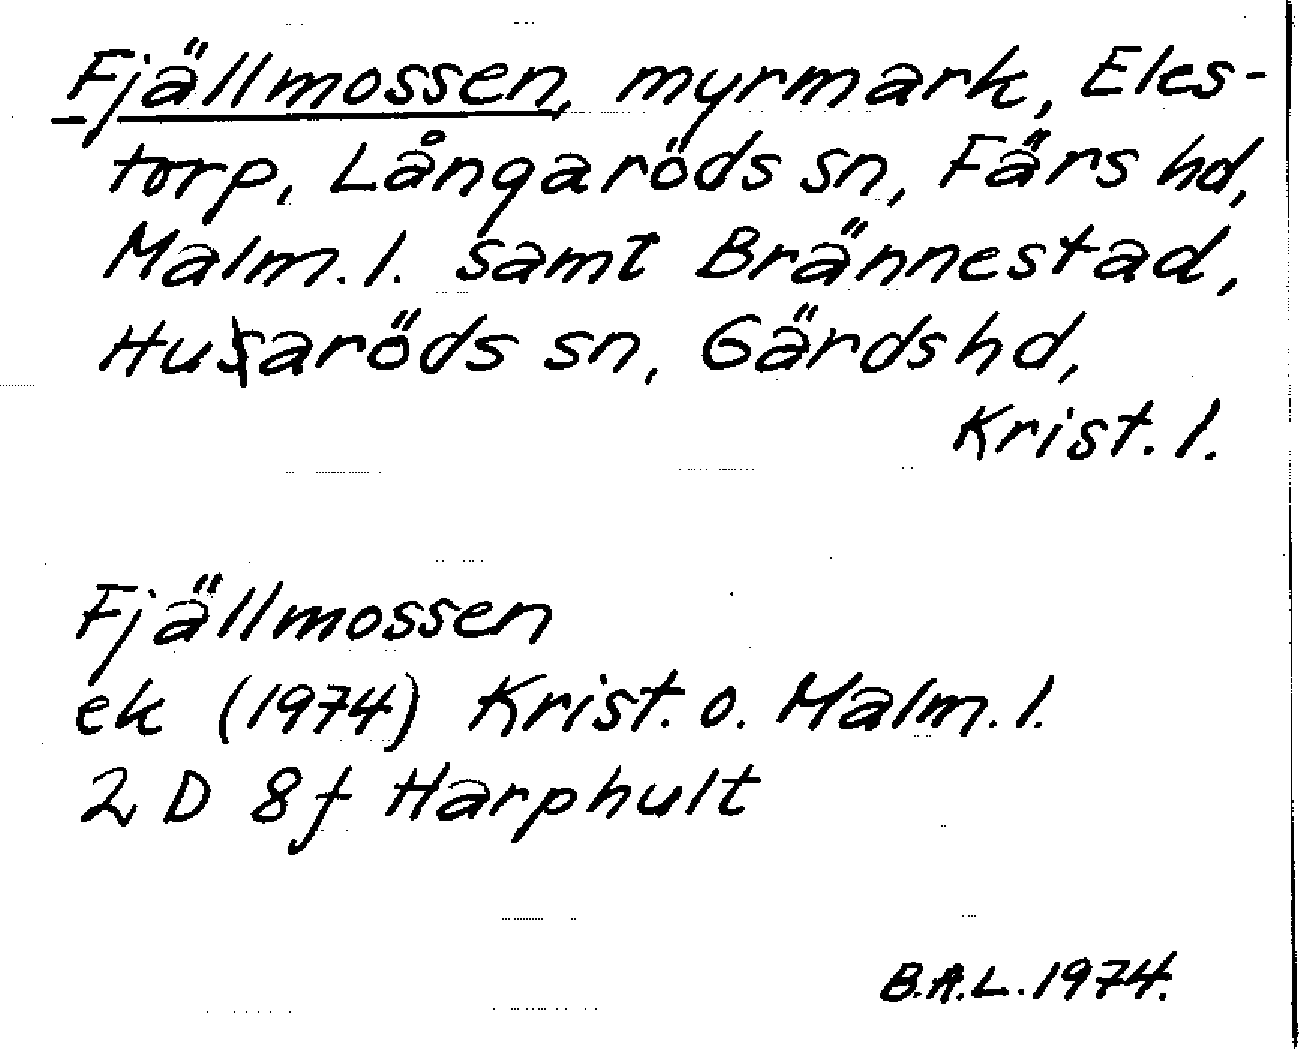 Fjällmossen, myrmark, Eles-
torp, Långaröds sn, Färs hd,
Malm. l. samt Brännestad,
Husaröds sn, Gärds hd,
Krist. l.
Fjällmossen
ek (1974) Krist. o. Malm. l.
2 D 8f Harphult
B.A.L. 1974.